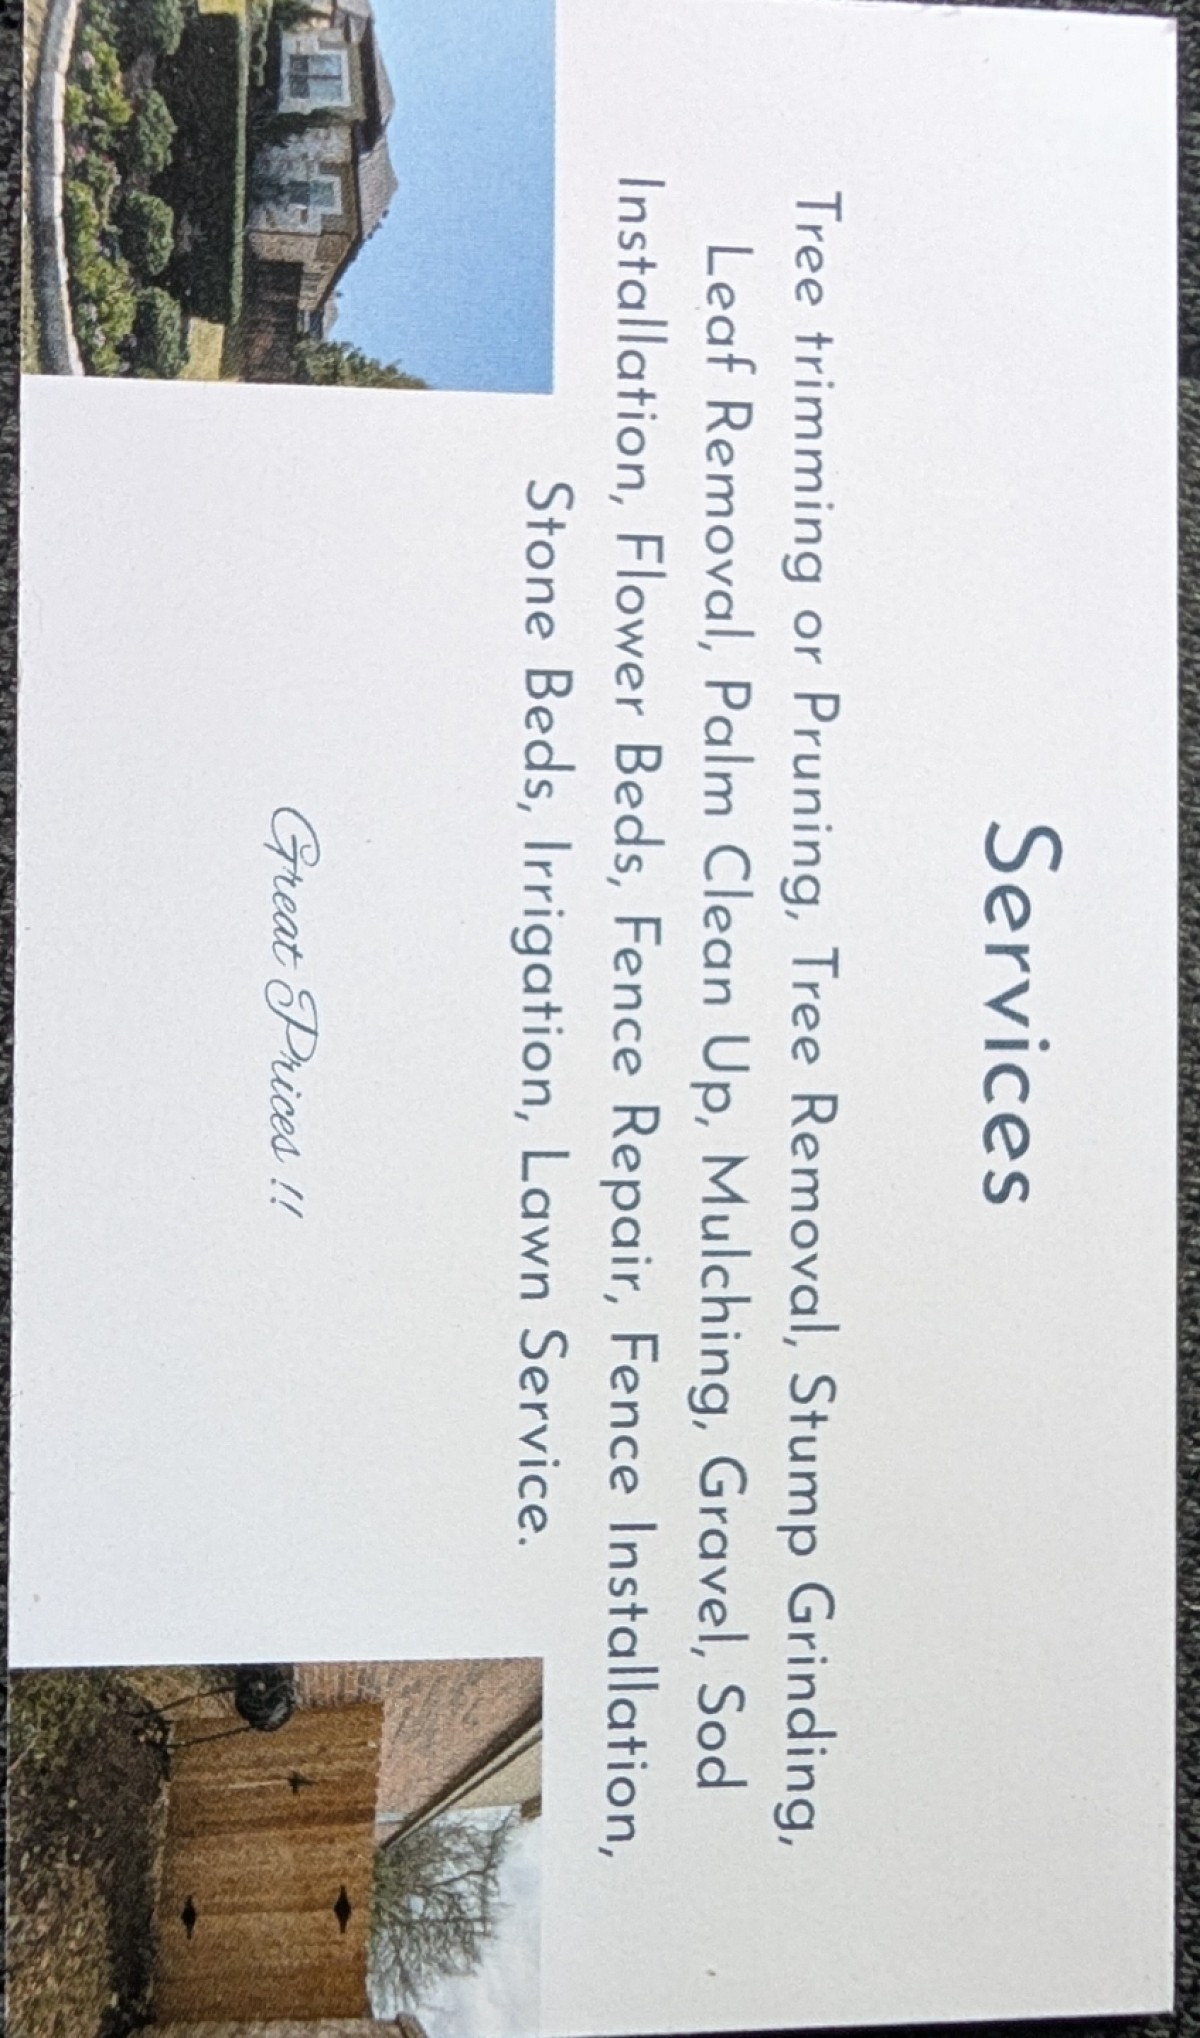 Services
Tree trimming or Pruning, Tree Removal, Stump Grinding,
Leaf Removal, Palm Clean Up, Mulching, Gravel, Sod
Installation, Flower Beds, Fence Repair, Fence Installation,
Stone Beds, Irrigation, Lawn Service.
Great Prices !!